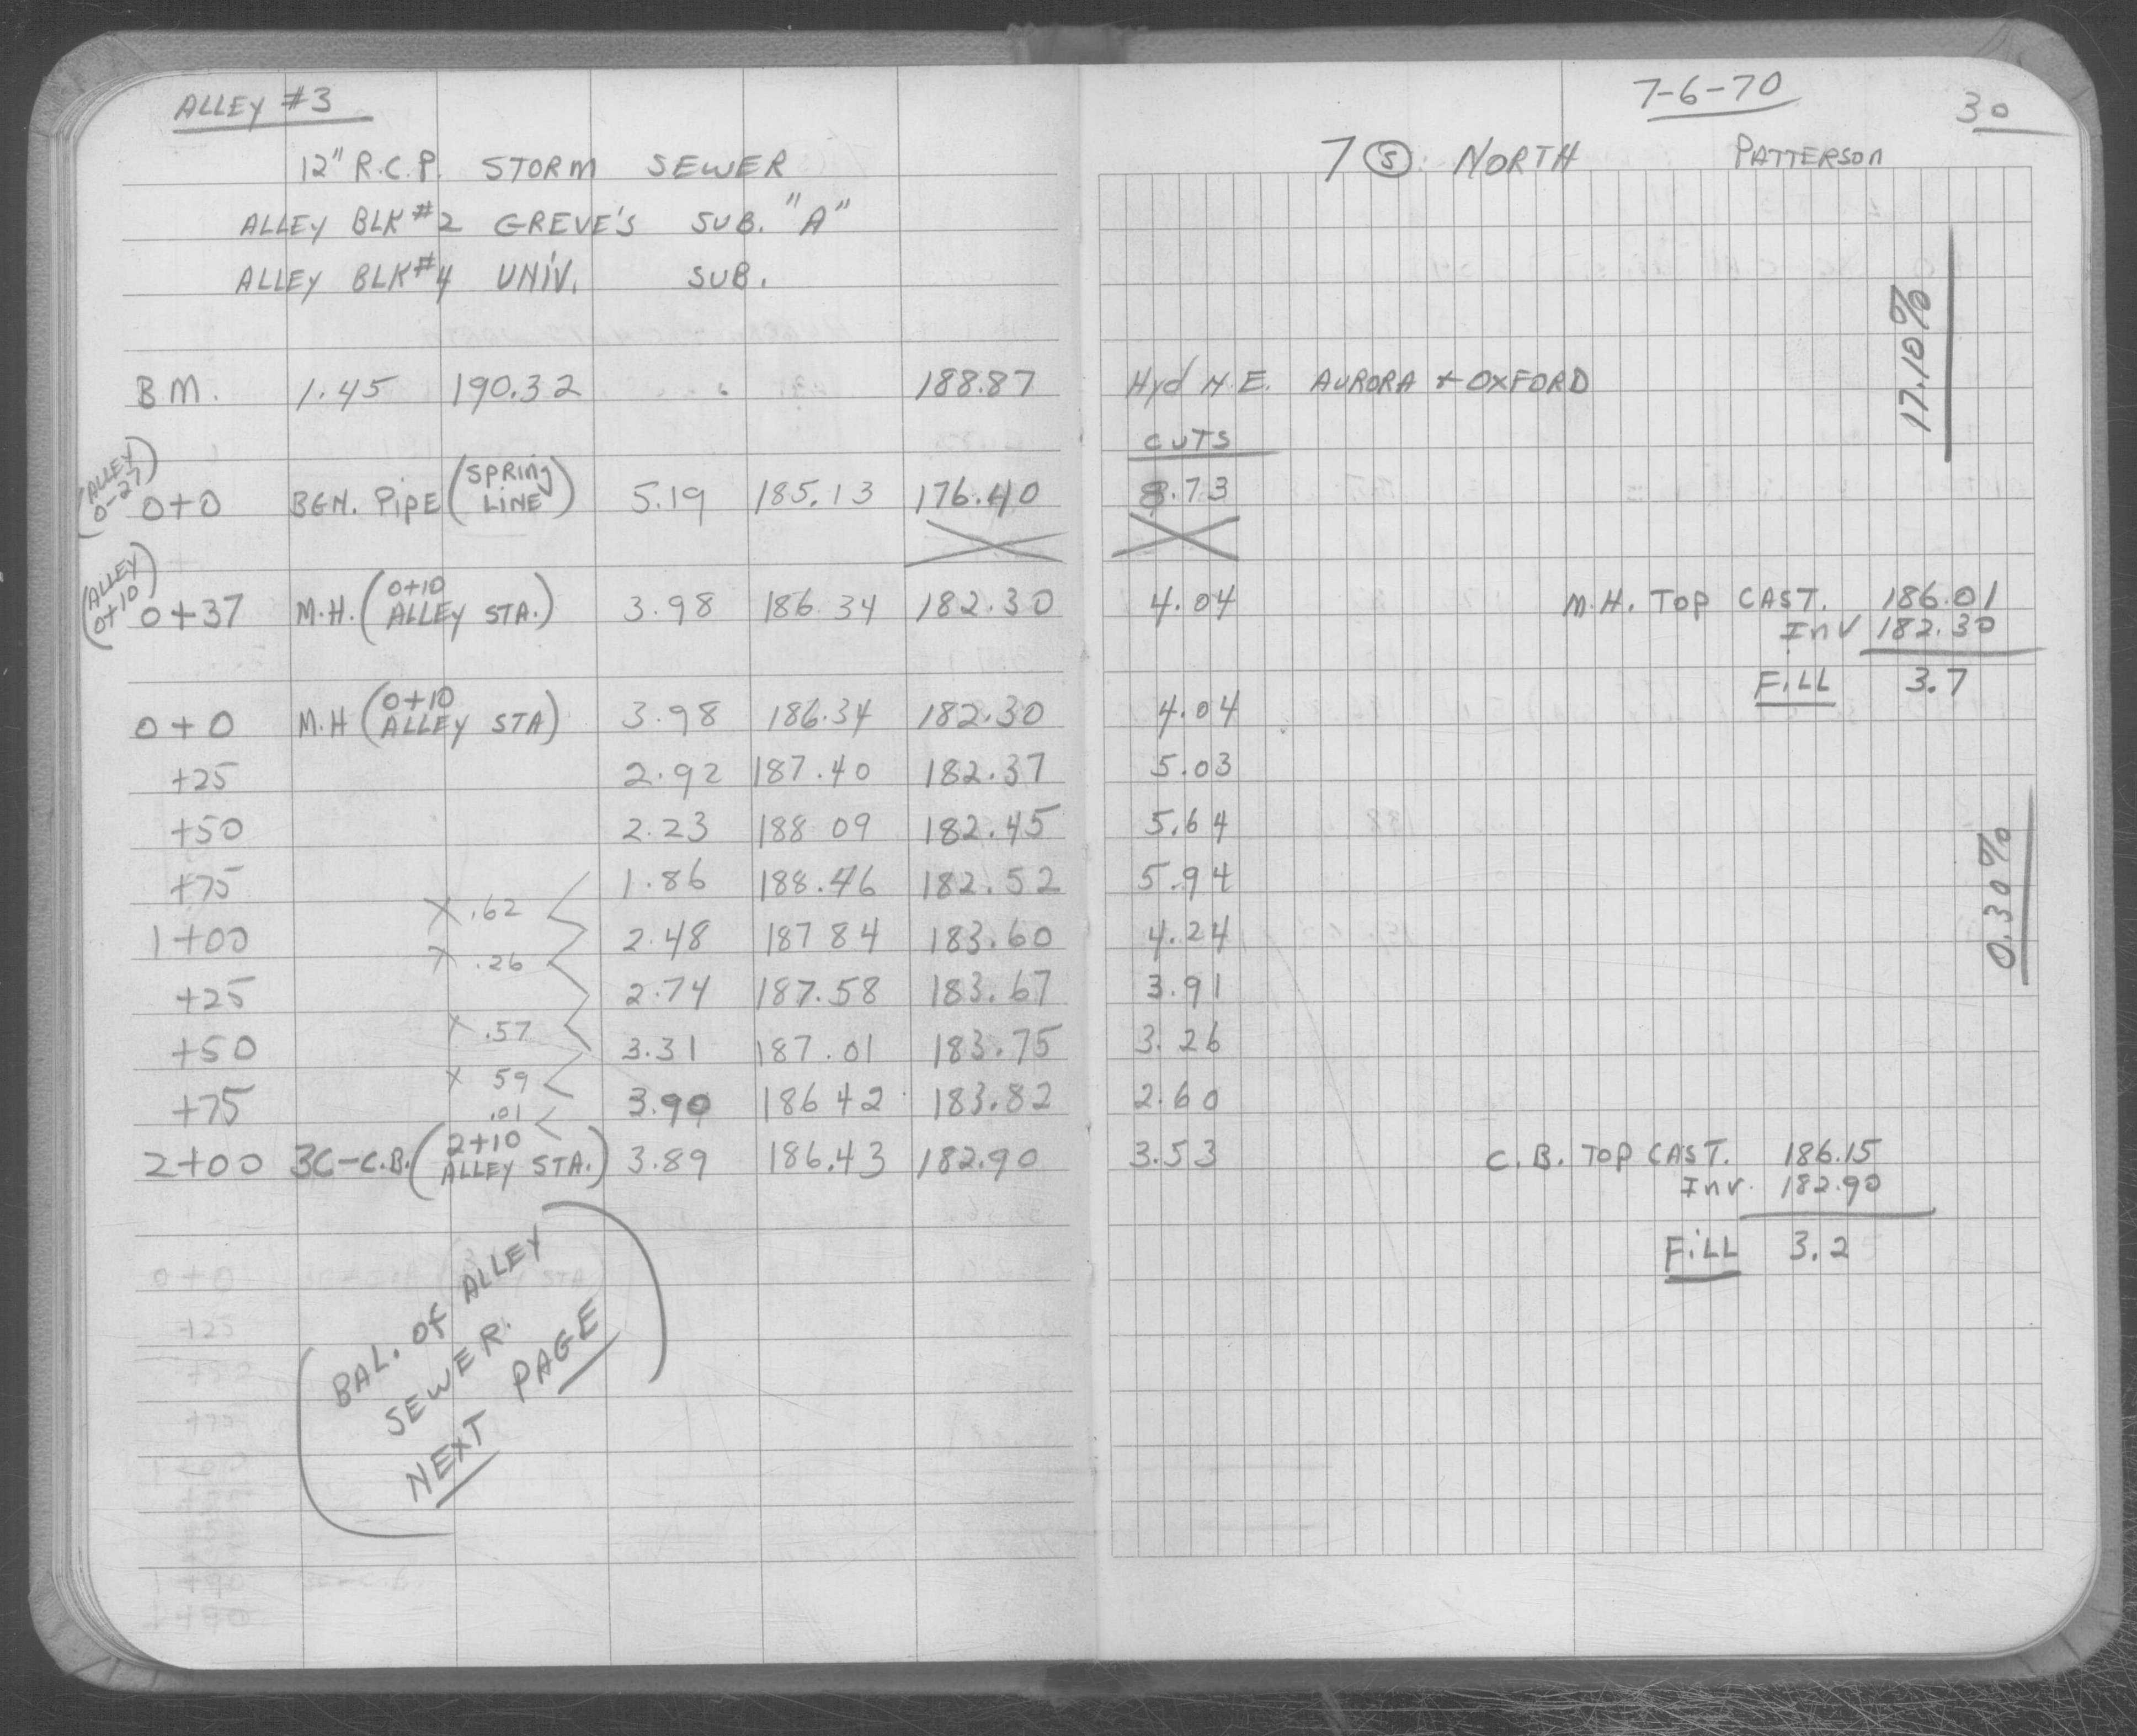 ALLEY #3
12" R.C.P. STORM SEWER
ALLEY BLK #2 GREVE'S SUB. "A"
ALLEY BLK #4 UNIV. SUB.
BM. 1.45 190.32 188.87
(ALLEY 0-27) 0+0 BGN. PIPE (SPRING LINE) 5.19 185.13 176.40
(ALLEY 0+10) 0+37 M.H. (0+10 ALLEY STA.) 3.98 186.34 182.30
0+0 M.H (0+10 ALLEY STA) 3.98 186.34 182.30
+25 2.92 187.40 182.37
+50 2.23 188 09 182.45
+75 1.86 188.46 182.52
X .62
1+00 2.48 187 84 183.60
X .26
+25 2.74 187.58 183.67
X .57
+50 3.31 187.01 183.75
X 59
+75 3.90 186 42 183.82
.01
2+00 3C-C.B. (2+10 ALLEY STA.) 3.89 186.43 182.90
(BAL. OF ALLEY
SEWER.
NEXT PAGE)
7-6-70
30
7 (S) NORTH PATTERSON
17.10%
Hyd N.E. AURORA + OXFORD
CUTS
8.73
4.04 M.H. TOP CAST. 186.01
Inv 182.30
FILL 3.7
4.04
5.03
5.64
5.94
4.24
3.91
3.26
2.60
0.30%
3.53 C.B. TOP CAST. 186.15
Inv. 182.90
FILL 3.2